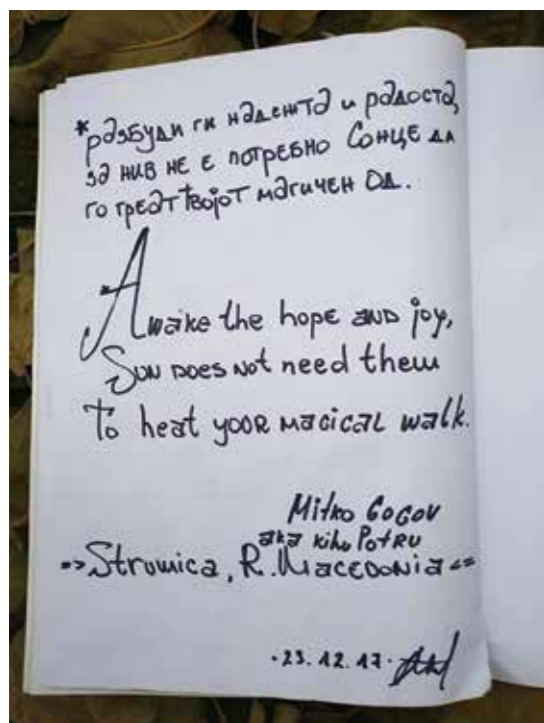 *разбуди ги надежта и радоста,
за нив не е потребно Сонце да
го греат твојот магичен Од.
Awake the hope and joy,
Sun does not need them
To heat yoor magical walk.
Mitko Gogov
aka kiho Potru
=> Strumica, R. Macedonia <=
·23.12.17·